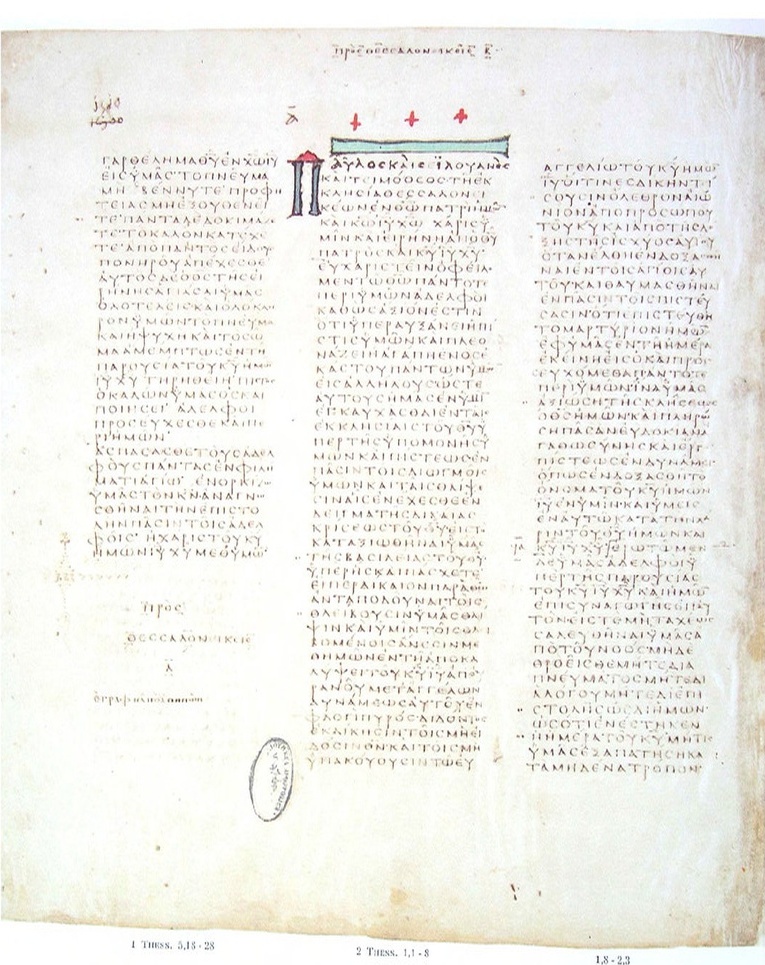 ΠΡΟϹ ΘΕϹϹΑΛΟΝΙΚΕΙϹ Β
Α
ΓΑΡΘΕΛΗΜΑΘΥΕΝΧΩΙΥ
ΕΙϹΥΜΑϹΤΟΠΝΕΥΜΑ
ΜΗ ϹΒΕΝΝΥΤΕΠΡΟΦΗ
ΤΕΙΑϹΜΗΕΞΟΥΘΕΝΕΙ
ΤΕΠΑΝΤΑΔΕΔΟΚΙΜΑΖΕ
ΤΕΤΟΚΑΛΟΝΚΑΤΕΧΕ
ΤΕΑΠΟΠΑΝΤΟϹΕΙΔΟΥϹ
ΠΟΝΗΡΟΥΑΠΕΧΕϹΘΕ
ΑΥΤΟϹΔΕΟΘϹΤΗϹΕΙ
ΡΗΝΗϹΑΓΙΑϹΑΙΥΜΑϹ
ΟΛΟΤΕΛΕΙϹΚΑΙΟΛΟΚΛΗ
ΡΟΝΥΜΩΝΤΟΠΝΕΥΜΑ
ΚΑΙΗΨΥΧΗΚΑΙΤΟϹΩ
ΜΑΑΜΕΜΠΤΩϹΕΝΤΗ
ΠΑΡΟΥϹΙΑΤΟΥΚΥΗΜΩ
ΙΥΧΥ ΤΗΡΗΘΕΙΗΠΙϹΤΟϹ
ΟΚΑΛΩΝΥΜΑϹΟϹΚΑΙ
ΠΟΙΗϹΕΙ ΑΔΕΛΦΟΙ
ΠΡΟϹΕΥΧΕϹΘΕΚΑΙΠΕ
ΡΙΗΜΩΝ
ΑϹΠΑϹΑϹΘΕΤΟΥϹΑΔΕΛ
ΦΟΥϹΠΑΝΤΑϹΕΝΦΙΛΗ
ΜΑΤΙΑΓΙΩ ΕΝΟΡΚΙΖΩ
ΥΜΑϹΤΟΝΚΝΑΝΑΓΝΩ
ϹΘΗΝΑΙΤΗΝΕΠΙϹΤΟ
ΛΗΝΠΑϹΙΝΤΟΙϹΑΔΕΛ
ΦΟΙϹ ΗΧΑΡΙϹΤΟΥΚΥ
ΗΜΩΝΙΥΧΥΜΕΘΥΜΩ
ΠΡΟϹ
ΘΕϹϹΑΛΟΝΙΚΕΙϹ
Α
ΠΑΥΛΟϹΚΑΙϹΙΛΟΥΑΝΟϹ
ΚΑΙΤΕΙΜΟΘΕΟϹΤΗΕΚ
ΚΛΗϹΙΑΘΕϹϹΑΛΟΝΕΙ
ΚΕΩΝΕΝΘΩΠΑΤΡΙΗΜΩ
ΚΑΙΚΩΙΥΧΩ ΧΑΡΙϹΥ
ΜΙΝΚΑΙΕΙΡΗΝΗΑΠΟΘΥ
ΠΑΤΡΟϹΚΑΙΚΥΙΥΧΥ
ΕΥΧΑΡΙϹΤΕΙΝΟΦΕΙΛΟ
ΜΕΝΤΩΘΩΠΑΝΤΟΤΕ
ΠΕΡΙΥΜΩΝΑΔΕΛΦΟΙ
ΚΑΘΩϹΑΞΙΟΝΕϹΤΙΝ
ΟΤΙΥΠΕΡΑΥΞΑΝΕΙΗΠΙ
ϹΤΙϹΥΜΩΝΚΑΙΠΛΕΟ
ΝΑΖΕΙΗΑΓΑΠΗΕΝΟϹΕ
ΚΑϹΤΟΥΠΑΝΤΩΝΥΜΩ
ΕΙϹΑΛΛΗΛΟΥϹΩϹΤΕ
ΑΥΤΟΥϹΗΜΑϹΕΝΥΜΙ
ΕΓΚΑΥΧΑϹΘΑΙΕΝΤΑΙϹ
ΕΚΚΛΗϹΙΑΙϹΤΟΥΘΥΥ
ΠΕΡΤΗϹΥΠΟΜΟΝΗϹΥ
ΜΩΝΚΑΙΠΙϹΤΕΩϹΕΝ
ΠΑϹΙΝΤΟΙϹΔΙΩΓΜΟΙϹ
ΥΜΩΝΚΑΙΤΑΙϹΘΛΙΨΕ
ϹΙΝΑΙϹΕΝΕΧΕϹΘΕΕΝ
ΔΕΙΓΜΑΤΗϹΔΙΚΑΙΑϹ
ΚΡΙϹΕΩϹΤΟΥΘΥΕΙϹΤΟ
ΚΑΤΑΞΙΩΘΗΝΑΙΥΜΑϹ
ΤΗϹΒΑϹΙΛΕΙΑϹΤΟΥΘΥ
ΥΠΕΡΗϹΚΑΙΠΑϹΧΕΤΕ
ΕΙΠΕΡΔΙΚΑΙΟΝΠΑΡΑΘΩ
ΑΝΤΑΠΟΔΟΥΝΑΙΤΟΙϹ
ΘΛΕΙΒΟΥϹΙΝΥΜΑϹΘΛΙ
ΨΙΝΚΑΙΥΜΙΝΤΟΙϹΘΛΙ
ΒΟΜΕΝΟΙϹΑΝΕϹΙΝΜΕ
ΘΗΜΩΝΕΝΤΗΑΠΟΚΑ
ΛΥΨΕΙΤΟΥΚΥΙΥΑΠΟΥ
ΡΑΝΟΥΜΕΤΑΓΓΕΛΩΝ
ΔΥΝΑΜΕΩϹΑΥΤΟΥΕΝ
ΦΛΟΓΙΠΥΡΟϹΔΙΔΟΝΤΟϹ
ΕΚΔΙΚΗϹΙΝΤΟΙϹΜΗΕΙ
ΔΟϹΙΝΘΝΚΑΙΤΟΙϹΜΗ
ΥΠΑΚΟΥΟΥϹΙΝΤΩΕΥ
ΑΓΓΕΛΙΩΤΟΥΚΥΗΜΩ
ΙΥΟΙΤΙΝΕϹΔΙΚΗΝΤΙ
ϹΟΥϹΙΝΟΛΕΘΡΟΝΑΙΩ
ΝΙΟΝΑΠΟΠΡΟϹΩΠΟΥ
ΤΟΥΚΥΚΑΙΑΠΟΤΗϹΔΟ
ΞΗϹΤΗϹΙϹΧΥΟϹΑΥΤΟΥ
ΟΤΑΝΕΛΘΗΕΝΔΟΞΑϹΘΗ
ΝΑΙΕΝΤΟΙϹΑΓΙΟΙϹΑΥ
ΤΟΥΚΑΙΘΑΥΜΑϹΘΗΝΑΙ
ΕΝΠΑϹΙΝΤΟΙϹΠΙϹΤΕΥ
ϹΑϹΙΝΟΤΙΕΠΙϹΤΕΥΘΗ
ΤΟΜΑΡΤΥΡΙΟΝΗΜΩΝ
ΕΦΥΜΑϹΕΝΤΗΗΜΕΡΑ
ΕΚΕΙΝΗΕΙϹΟΚΑΙΠΡΟϹ
ΕΥΧΟΜΕΘΑΠΑΝΤΟΤΕ
ΠΕΡΙΥΜΩΝΙΝΑΥΜΑϹ
ΑΞΙΩϹΗΤΗϹΚΛΗϹΕΩϹ
ΟΘϹΗΜΩΝΚΑΙΠΛΗΡΩ
ϹΗΠΑϹΑΝΕΥΔΟΚΙΑΝΑ
ΓΑΘΩϹΥΝΗϹΚΑΙΕΡΓΟ
ΠΙϹΤΕΩϹΕΝΔΥΝΑΜΕΙ
ΟΠΩϹΕΝΔΟΞΑϹΘΗΤΟ
ΟΝΟΜΑΤΟΥΚΥΗΜΩΝ
ΙΥΕΝΥΜΙΝΚΑΙΥΜΕΙϹ
ΕΝΑΥΤΩΚΑΤΑΤΗΝΧΑ
ΡΙΝΤΟΥΘΥΗΜΩΝΚΑΙ
ΚΥΙΥΧΥΕΡΩΤΩΜΕΝ
ΔΕΥΜΑϹΑΔΕΛΦΟΙΥ
ΠΕΡΤΗϹΠΑΡΟΥϹΙΑϹ
ΤΟΥΚΥΙΥΧΥΚΑΙΗΜΩ
ΕΠΙϹΥΝΑΓΩΓΗϹΕΠΑΥ
ΤΟΝΕΙϹΤΟΜΗΤΑΧΕΩϹ
ϹΑΛΕΥΘΗΝΑΙΥΜΑϹΑ
ΠΟΤΟΥΝΟΟϹΜΗΔΕ
ΘΡΟΕΙϹΘΕΜΗΤΕΔΙΑ
ΠΝΕΥΜΑΤΟϹΜΗΤΕΔΙ
ΑΛΟΓΟΥΜΗΤΕΔΙΕΠΙ
ϹΤΟΛΗϹΩϹΔΙΗΜΩΝ
ΩϹΟΤΙΕΝΕϹΤΗΚΕΝ
ΗΗΜΕΡΑΤΟΥΚΥΜΗΤΙϹ
ΥΜΑϹΕΞΑΠΑΤΗϹΗΚΑ
ΤΑΜΗΔΕΝΑΤΡΟΠΟΝ
1 THESS. 5,18 - 28
2 THESS. 1,1 - 8
1,8 - 2,3